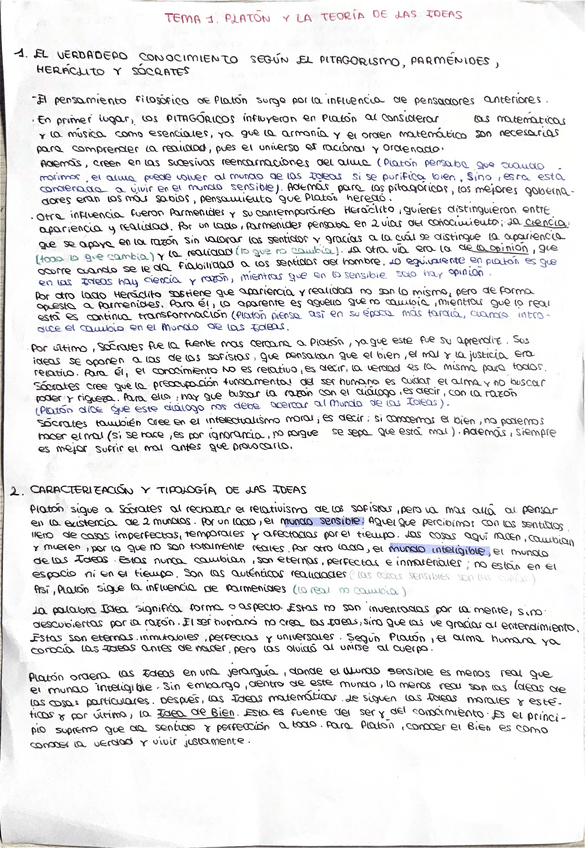 TEMA 1. PLATÓN Y LA TEORÍA DE LAS IDEAS
1. EL VERDADERO CONOCIMIENTO SEGÚN EL PITAGORISMO, PARMÉNIDES,
HERÁCLITO Y SÓCRATES
- El pensamiento filosófico de Platón surge por la influencia de pensadores anteriores.
· En primer lugar, los PITAGÓRICOS influyeron en Platón al considerar las matemáticas
y la música como esenciales, ya que la armonía y el orden matemático son necesarias
para comprender la realidad, pues el universo es racional y ordenado.
Además, creen en las sucesivas reencarnaciones del alma (Platón pensaba que cuando
morimos, el alma puede volver al mundo de las Ideas si se purifica bien, Sino, estará
condenada a vivir en el mundo sensible). Además para los pitagóricos, los mejores goberna-
dores eran los más sabios, pensamiento que Platón heredó.
· Otra influencia fueron Parménides y su contemporáneo Heráclito, quienes distinguieron entre
apariencia y realidad. Por un lado, Parménides pensaba en 2 vías del conocimiento: la ciencia,
que se apoya en la razón sin valorar los sentidos y gracias a la cuál se distingue la apariencia
(todo lo que cambia) y la realidad (lo que no cambia). La otra vía era la de la opinión, que
ocurre cuando se le da fiabilidad a los sentidos del hombre. Lo equivalente en platón es que
en las Ideas hay ciencia y razón, mientras que en lo sensible solo hay opinión.
Por otro lado Heráclito sostiene que apariencia y realidad no son lo mismo, pero de forma
opuesta a Parménides. Para él, lo aparente es aquello que no cambia, mientras que lo real
está en continua transformación (Platón piensa así en su época más tardía, cuando intro-
duce el cambio en el Mundo de las Ideas.
Por último, Sócrates fue la fuente más cercana a Platón, ya que este fue su aprendiz. Sus
ideas se oponen a las de los sofistas, que pensaban que el bien, el mal y la justicia era
relativo. Para él, el conocimiento no es relativo, es decir, la verdad es la misma para todos.
Sócrates cree que la preocupación fundamental del ser humano es cuidar el alma y no buscar
poder y riqueza. Para ello, hay que buscar la razón con el diálogo, es decir, con la razón
(Platón dice que este diálogo nos debe acercar al Mundo de las Ideas).
Sócrates también cree en el intelectualismo moral, es decir: si conocemos el bien, no podemos
hacer el mal (si se hace, es por ignorancia, no porque se sepa que está mal). Además, siempre
es mejor sufrir el mal antes que provocarlo.
2. CARACTERIZACIÓN Y TIPOLOGÍA DE LAS IDEAS
Platón sigue a Sócrates al rechazar el relativismo de los sofistas, pero va más allá al pensar
en la existencia de 2 mundos. Por un lado, el mundo sensible: Aquel que percibimos con los sentidos
lleno de cosas imperfectas, temporales y afectadas por el tiempo. Las cosas aquí nacen, cambian
y mueren, por lo que no son totalmente reales. Por otro lado, el mundo inteligible, el mundo
de las Ideas. Estas nunca cambian, son eternas, perfectas e inmateriales; no están en el
espacio ni en el tiempo. Son las auténticas realidades (las cosas sensibles son sus copias)
Así, Platón sigue la influencia de Parménides (lo real no cambia)
La palabra Idea significa forma o aspecto. Estas no son inventadas por la mente, sino
descubiertas por la razón. El ser humano no crea las Ideas, sino que las ve gracias al entendimiento.
Estas son eternas, inmutables, perfectas y universales. Según Platón, el alma humana ya
conocía las Ideas antes de nacer, pero las olvidó al unirse al cuerpo.
Platón ordena las Ideas en una jerarquía, donde el Mundo sensible es menos real que
el mundo Inteligible. Sin embargo, dentro de este mundo, lo menos real son las Ideas de
las cosas particulares. Después, las Ideas matemáticas. Le siguen las Ideas morales y esté-
ticas y por último, la Idea de Bien. Esta es fuente del ser y del conocimiento. Es el princi-
pio supremo que da sentido y perfección a todo. Para Platón, conocer el Bien es como
conocer la verdad y vivir justamente.